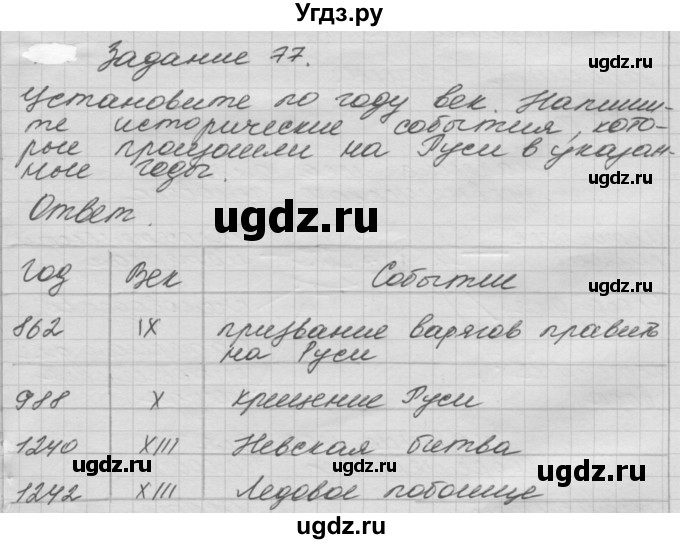 Угдз.ру
Задание 77. ugdz.ru
Установите по году век. Напиши-
те исторические события, кото-
рые произошли на Руси в указан-
ные годы. ugdz.ru
Ответ. ugdz.ru
Год Век Событие ugdz.ru
862 IX призвание варягов править
на Руси
988 X крещение Руси ugdz.ru
1240 XIII Невская битва
ugdz.ru ugdz.ru ugdz.ru
1242 XIII Ледовое побоище
ugdz.ru